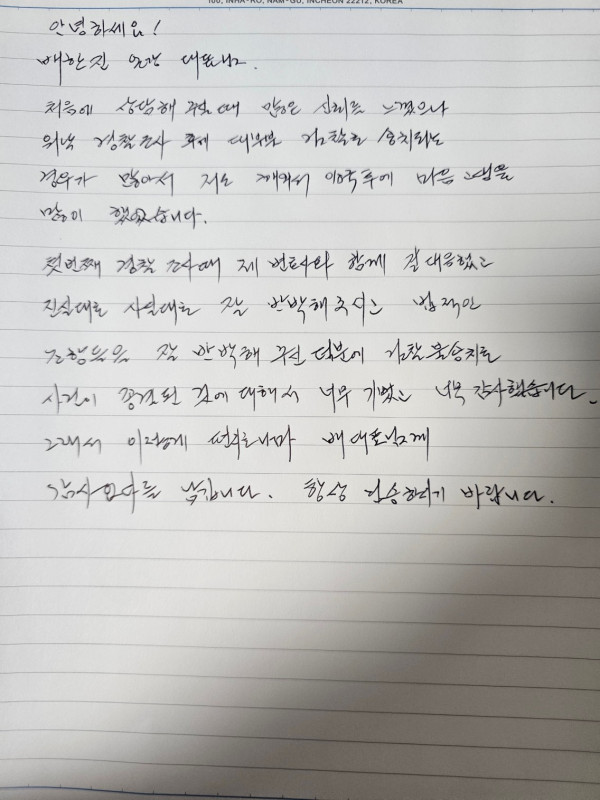 100, INHA-RO, NAM-GU, INCHEON 22212, KOREA
안녕하세요!
배한진 대표님.
처음에 상담해 주실 때 많은 신뢰를 느꼈으나
워낙 경찰조사 후에 대부분 검찰로 송치되는
경우가 많아서 저도 이후에 마음고생을
많이 했었습니다.
첫번째 경찰 조사때 제 변호사와 함께 잘 대응했고
진실대로 사실대로 잘 반박해주시는 법적인
잘 반박해 주신 덕분에 검찰 불송치로
사건이 종결된 것에 대해서 너무 기뻤고 너무 감사했습니다.
그래서 이렇게 편지로나마 배 대표님께
감사인사를 남깁니다. 항상 건승하시기 바랍니다.